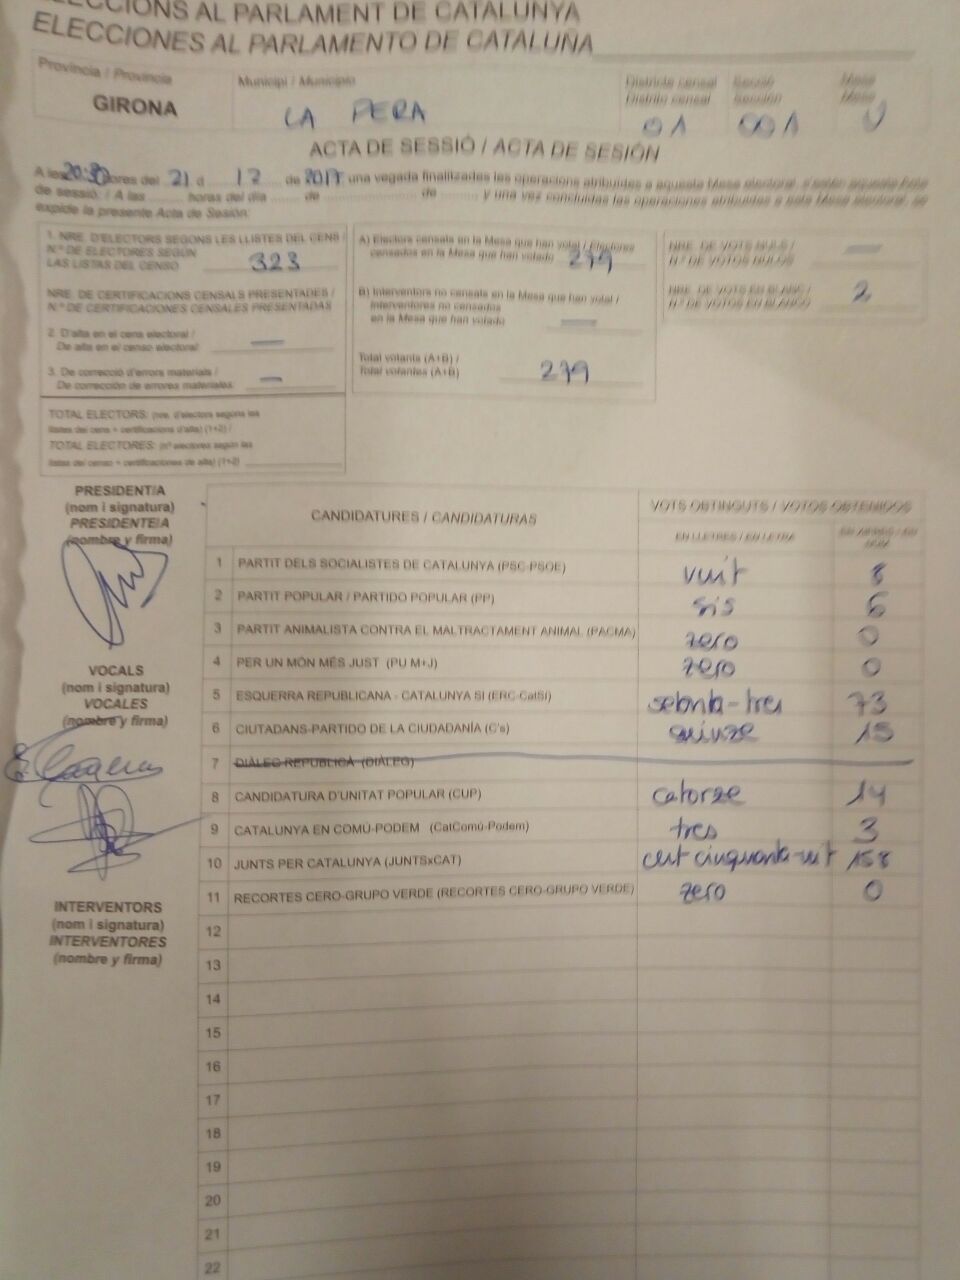 ELECCIONS AL PARLAMENT DE CATALUNYA
ELECCIONES AL PARLAMENTO DE CATALUÑA
Província / Provincia
GIRONA
Municipi / Municipio
LA PERA
Districte censal
Distrito censal
01
Secció
Sección
001
Mesa
Mesa
U
ACTA DE SESSIÓ / ACTA DE SESIÓN
A les 20:30 hores del 21 d 12 de 2017 una vegada finalitzades les operacions atribuïdes a aquesta Mesa electoral, s'estén aquesta Acta
de sessió. / A las horas del día de de y una vez concluidas las operaciones atribuidas a esta Mesa electoral, se
expide la presente Acta de Sesión:
1. NRE. D'ELECTORS SEGONS LES LLISTES DEL CENS /
N.º DE ELECTORES SEGÚN
LAS LISTAS DEL CENSO 323
NRE. DE CERTIFICACIONS CENSALS PRESENTADES /
N.º DE CERTIFICACIONES CENSALES PRESENTADAS
2. D'alta en el cens electoral /
De alta en el censo electoral: —
3. De correcció d'errors materials /
De corrección de errores materiales: —
TOTAL ELECTORS: (nre. d'electors segons les
llistes del cens + certificacions d'alta) (1+2) /
TOTAL ELECTORES: (nº electores según las
listas del censo + certificaciones de alta) (1+2)
A) Electors censats en la Mesa que han votat / Electores
censados en la Mesa que han votado 279
B) Interventors no censats en la Mesa que han votat /
Interventores no censados
en la Mesa que han votado —
Total votants (A+B) /
Total votantes (A+B) 279
NRE. DE VOTS NULS /
N.º DE VOTOS NULOS —
NRE. DE VOTS EN BLANC /
N.º DE VOTOS EN BLANCO 2
PRESIDENT/A
(nom i signatura)
PRESIDENTE/A
(nombre y firma)
VOCALS
(nom i signatura)
VOCALES
(nombre y firma)
INTERVENTORS
(nom i signatura)
INTERVENTORES
(nombre y firma)
CANDIDATURES / CANDIDATURAS
VOTS OBTINGUTS / VOTOS OBTENIDOS
EN LLETRES / EN LETRA
1 PARTIT DELS SOCIALISTES DE CATALUNYA (PSC-PSOE) vuit 8
2 PARTIT POPULAR / PARTIDO POPULAR (PP) sis 6
3 PARTIT ANIMALISTA CONTRA EL MALTRACTAMENT ANIMAL (PACMA) zero 0
4 PER UN MÓN MÉS JUST (PU M+J) zero 0
5 ESQUERRA REPUBLICANA - CATALUNYA SI (ERC-CatSI) setanta-tres 73
6 CIUTADANS-PARTIDO DE LA CIUDADANÍA (C's) quinze 15
7 DIÀLEG REPUBLICÀ (DIÀLEG)
8 CANDIDATURA D'UNITAT POPULAR (CUP) catorze 14
9 CATALUNYA EN COMÚ-PODEM (CatComú-Podem) tres 3
10 JUNTS PER CATALUNYA (JUNTSxCAT) cent cinquanta-vuit 158
11 RECORTES CERO-GRUPO VERDE (RECORTES CERO-GRUPO VERDE) zero 0
12
13
14
15
16
17
18
19
20
21
22